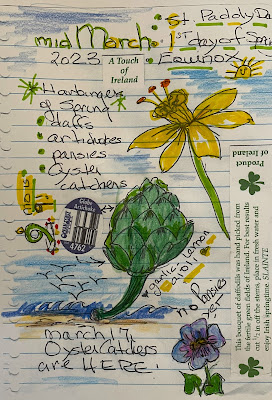 St. Paddy Da
mid March • 1st day of Spr
2023 Equinox
A Touch
of
Ireland
* Harbingers *
of Spring
• daffs
• artichokes
• pansies
• Oyster
catchers
Globe
Artichoke
4762
garlic lemon
aioli
no Pansies
yet
march 17,
Oystercatchers
are HERE!
Product
of Ireland
This bouquet of daffodils was hand picked from
the fertile green fields of Ireland. For best results
cut ½" off the stems, place in fresh water and
enjoy Irish springtime. SLAINTE